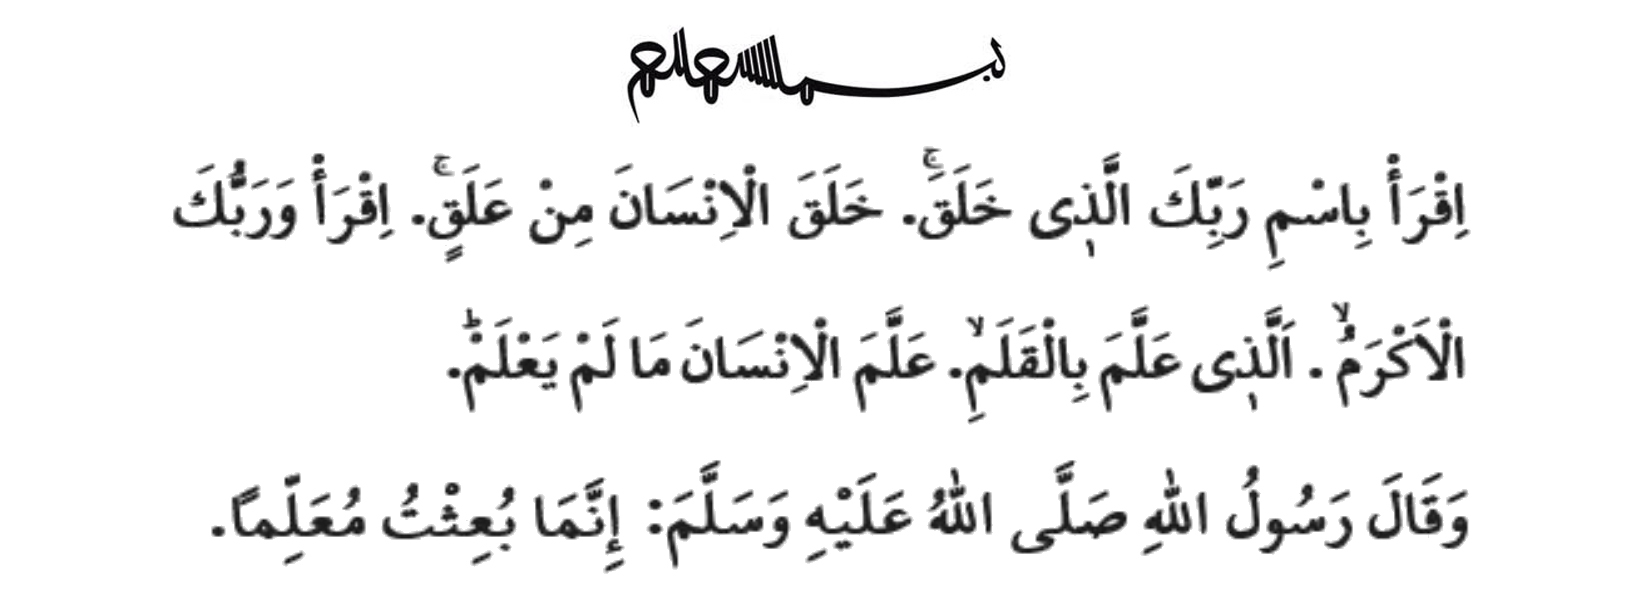 بسم الله الرحمن الرحيم
اِقْرَأْ بِاسْمِ رَبِّكَ الَّذٖى خَلَقَۚ. خَلَقَ الْاِنْسَانَ مِنْ عَلَقٍۚ. اِقْرَأْ وَرَبُّكَ
الْاَكْرَمُۙ. اَلَّذٖى عَلَّمَ بِالْقَلَمِۙ. عَلَّمَ الْاِنْسَانَ مَا لَمْ يَعْلَمْؕ.
وَقَالَ رَسُولُ اللّٰهِ صَلَّى اللّٰهُ عَلَيْهِ وَسَلَّمَ: إِنَّمَا بُعِثْتُ مُعَلِّماً.